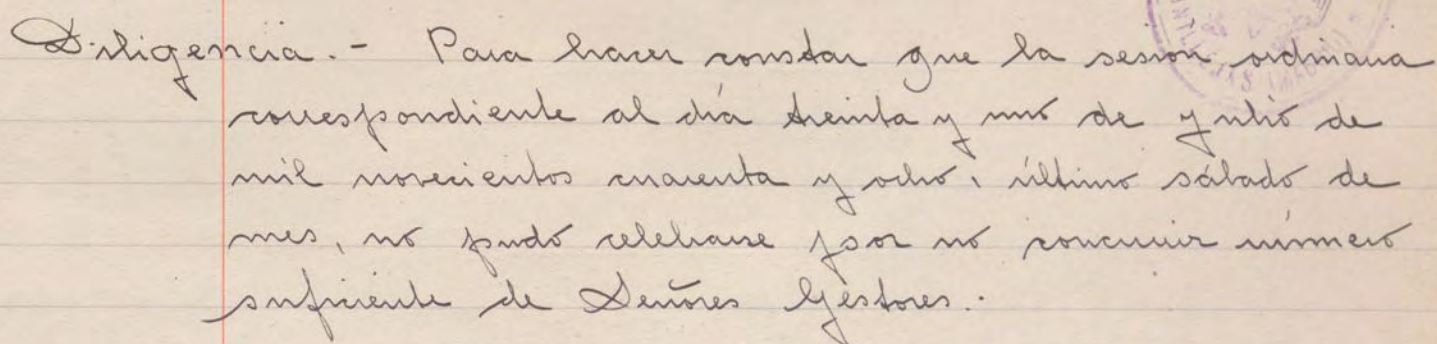 Diligencia.- Para hacer constar que la sesion, ordinaria
correspondiente al día treinta y uno de Julio de
mil novecientos cuarenta y ocho, último sábado de
mes, no pudo celebrarse por no concurrir número
suficiente de Señores Gestores.